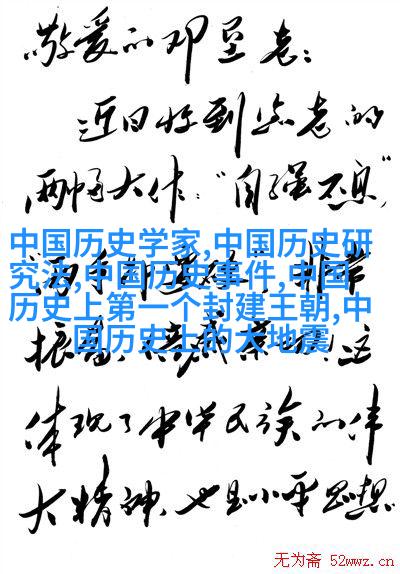 敬爱的邓垦老：
近日收到您老的
两幅大作："自强不息"
中国历史学家,中国历史研
究法,中国历史事件,中国
历史上第一个封建王朝,中
国历史上的大地震
非常
振奋
这
体现了中华民族的伟
大精神，也是小平思想
无为斋 52wwz.cn